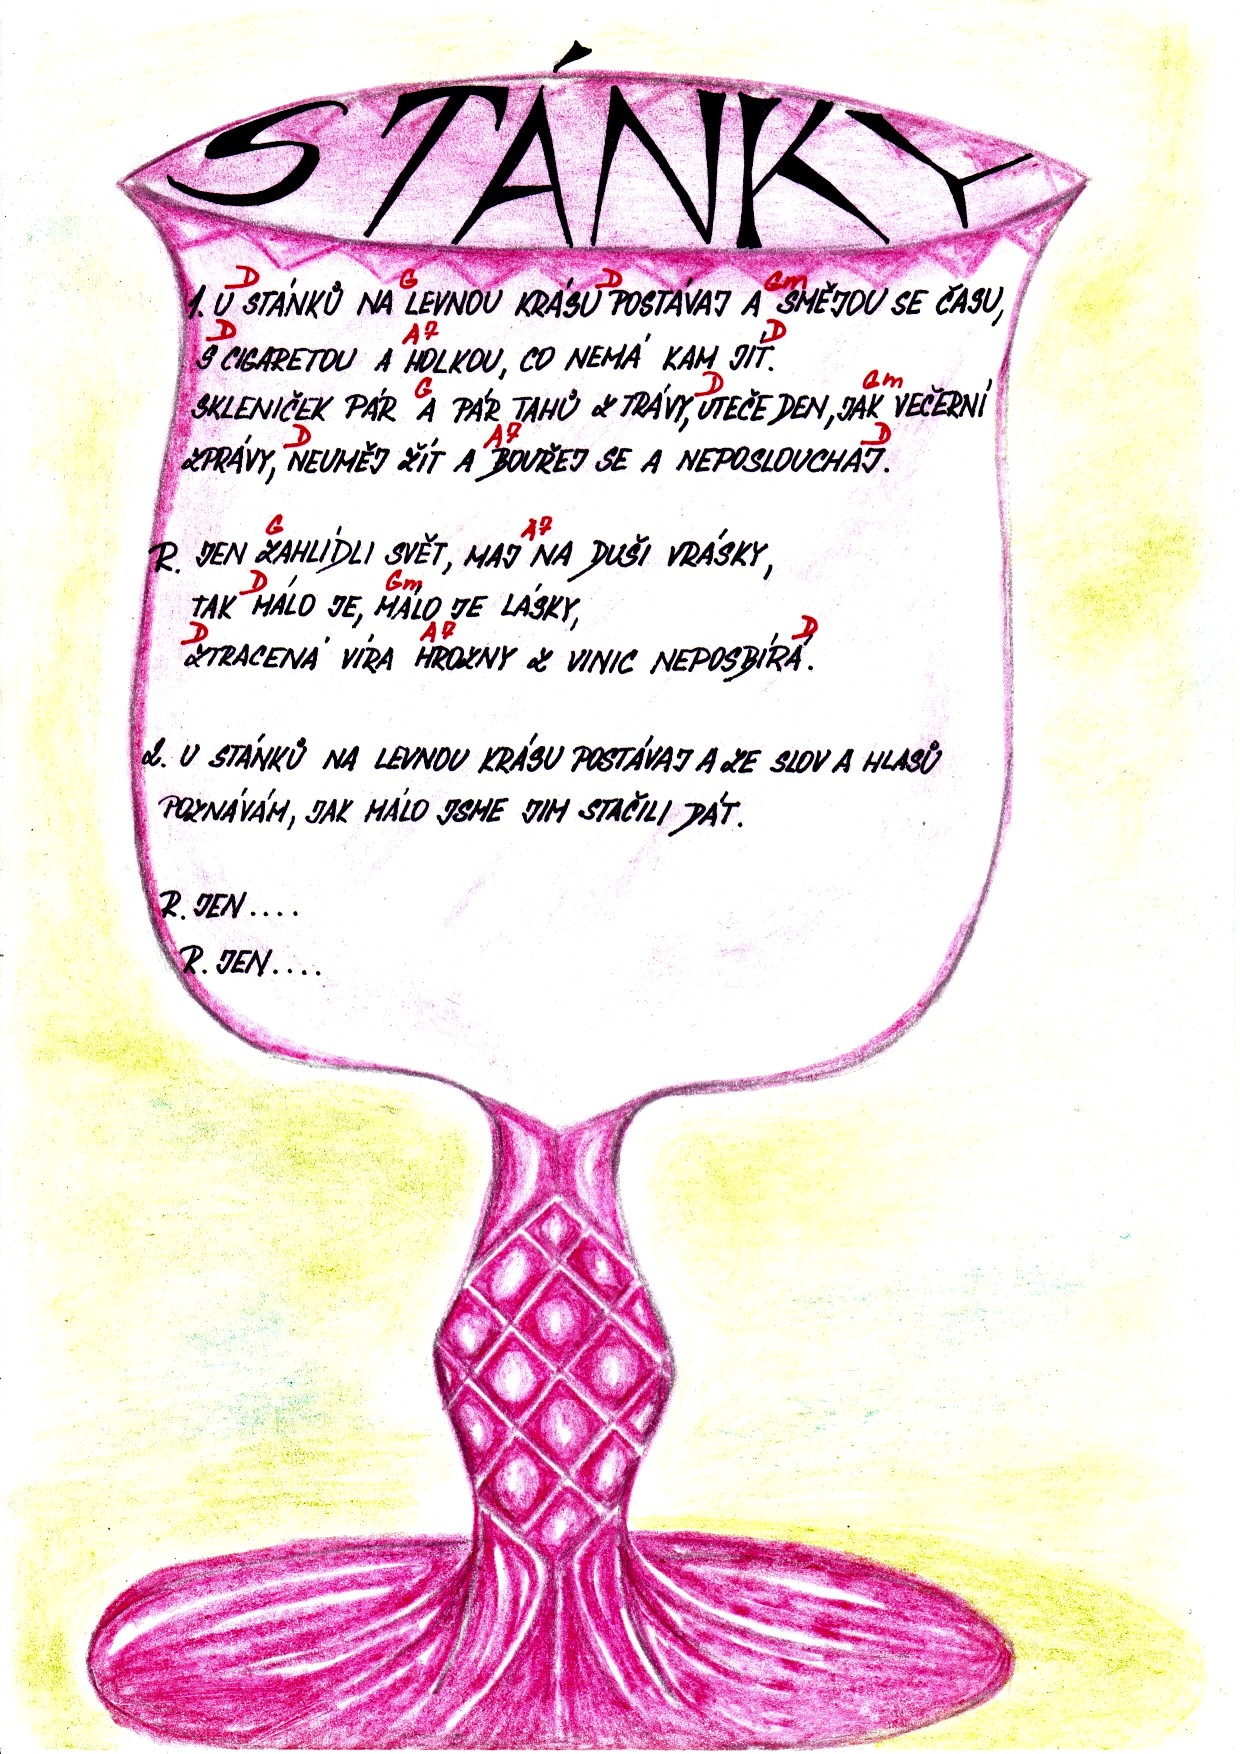 STÁNKY
D G D Gm
1. U STÁNKŮ NA LEVNOU KRÁSU POSTÁVAJ A SMĚJOU SE ČASU,
D A7 D
S CIGARETOU A HOLKOU, CO NEMÁ KAM JÍT.
G D Gm
SKLENIČEK PÁR A PÁR TAHŮ Z TRÁVY, UTEČE DEN, JAK VEČERNÍ
D A7 D
ZPRÁVY, NEUMĚJ ŽÍT A BOUŘEJ SE A NEPOSLOUCHAJ.
G A7
R. JEN ZAHLÍDLI SVĚT, MAJ NA DUŠI VRÁSKY,
D Gm
TAK MÁLO JE, MÁLO JE LÁSKY,
D A7 D
ZTRACENÁ VÍRA HROZNY Z VINIC NEPOSBÍRÁ.
2. U STÁNKŮ NA LEVNOU KRÁSU POSTÁVAJ A ZE SLOV A HLASŮ
POZNÁVÁM, JAK MÁLO JSME JIM STAČILI DÁT.
R. JEN....
R. JEN....